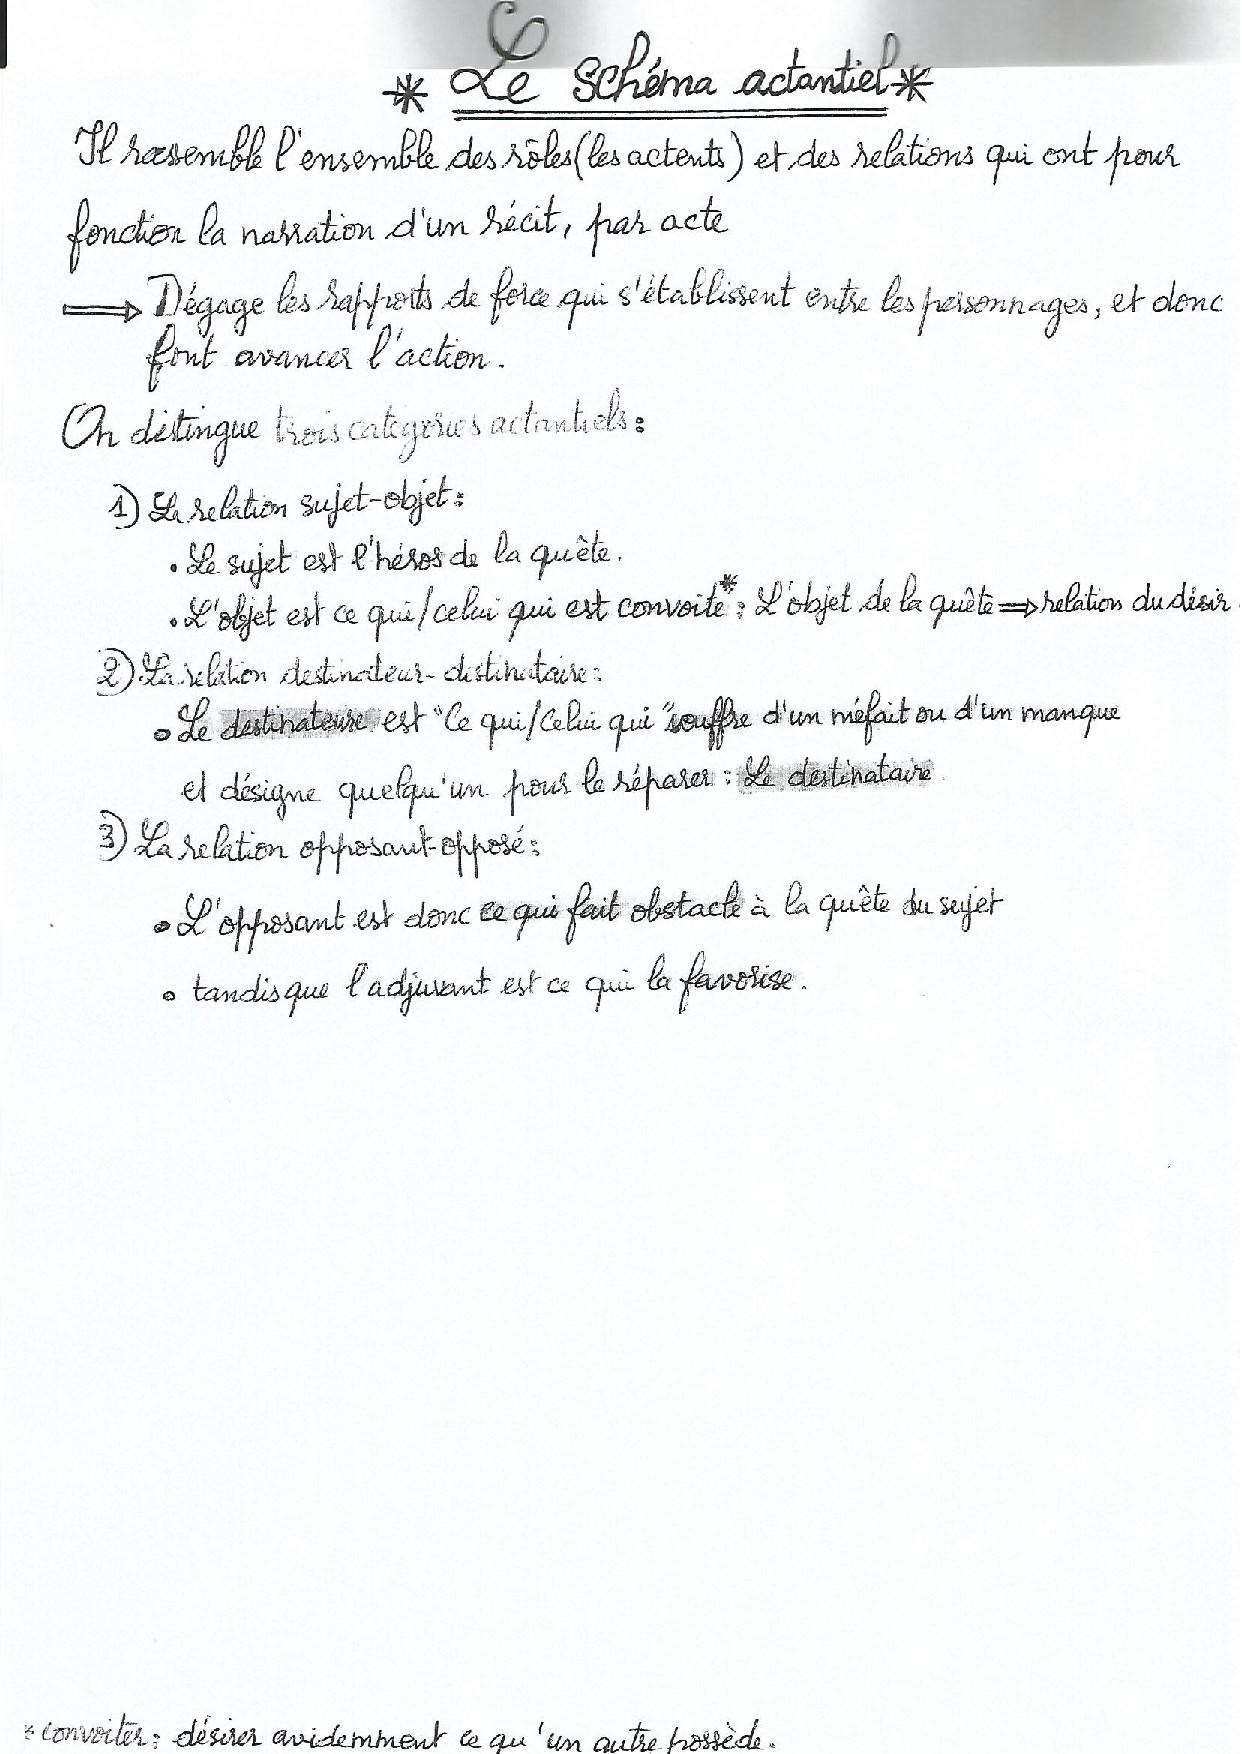 * Le schéma actantiel *
Il rassemble l'ensemble des rôles (les actents) et des relations qui ont pour
fonction la narration d'un récit, par acte
⟹ Dégage les rapports de force qui s'établissent entre les personnages, et donc
font avancer l'action.
On distingue trois categories actantiels :
1) La relation sujet-objet :
• Le sujet est l'héros de la quête.
• L'objet est ce qui/celui qui est convoité* : L'objet de la quête ⟹ relation du désir.
2) La relation destinateur-distinataire :
• Le destinateure est "Ce qui/Celui qui" souffre d'un méfait ou d'un manque
et désigne quelqu'un pour le réparer : Le destinataire.
3) La relation opposant-opposé :
• L'opposant est donc ce qui fait obstacle à la quête du sujet
• tandis que l'adjuvant est ce qui la favorise.
* convoiter : désirer avidemment ce qu'un autre possède.